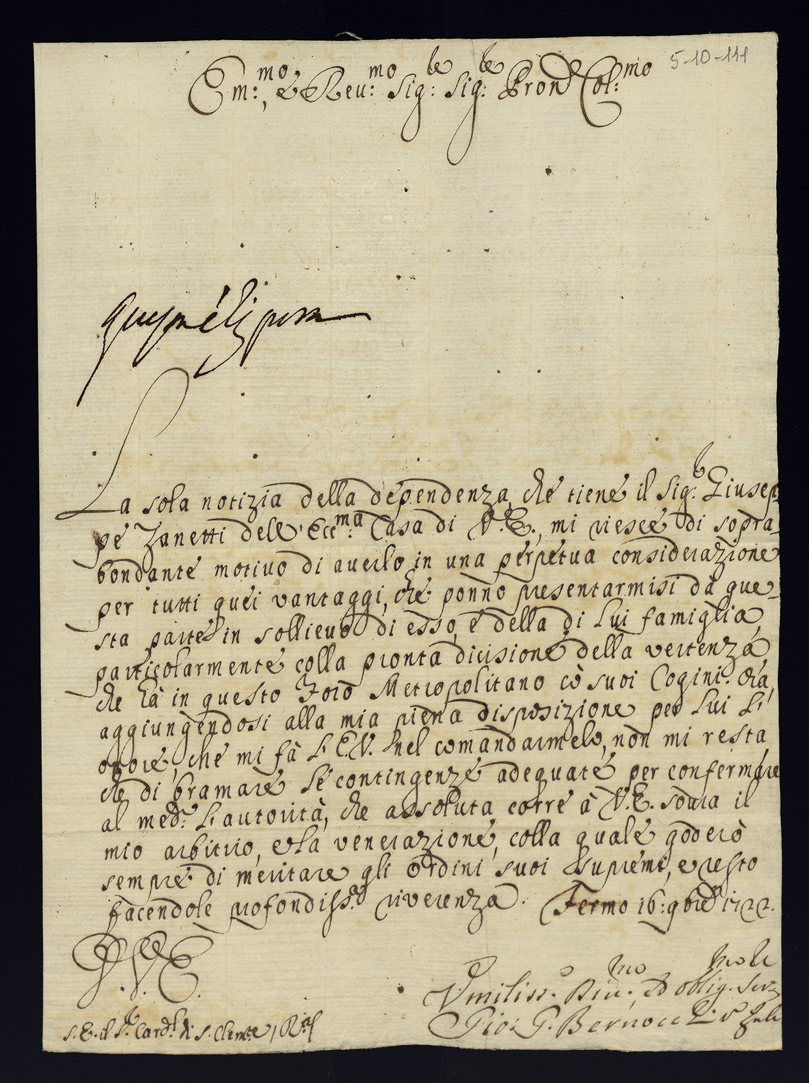 5-10-111
Em:mo, e Reu:mo Sig:le Sig:le Pron Col:mo
La sola notizia della dependenza, che tiene il Sig:r Giusep-
pe Zanetti dell'Ecc:ma Casa di V.E., mi riesce di sopra-
bondante motivo di auerlo in una perpetua considerazione
per tutti quei vantaggi, che ponno presentarmisi da que-
sta parte in sollieuo di esso, e della di Lui famiglia,
particolarmente colla pronta diuisione della vertenza
che hà in questo Foro Metropolitano cò suoi Cogini. Ora,
aggiungendosi alla mia piena disposizione per Lui l'
onore, che mi fà l'E.V. nel comandarmelo, non mi resta,
che di bramare le contingenze adequate per confermare
al med:o l'autorità, che assoluta corre à V.E. soura il
mio arbitrio, e la venerazione, colla quale goderò
sempre di meritare gli Ordini suoi supremi, e resto
facendole profondiss:a riuerenza. Fermo 16: 9bre 1722.
D. V. E.
Vmiliss:o Diu:mo Ed oblig:mo Ser:le
S. E. il S:r Card:l di S. Clem:te /
Gio: G. Bernocc